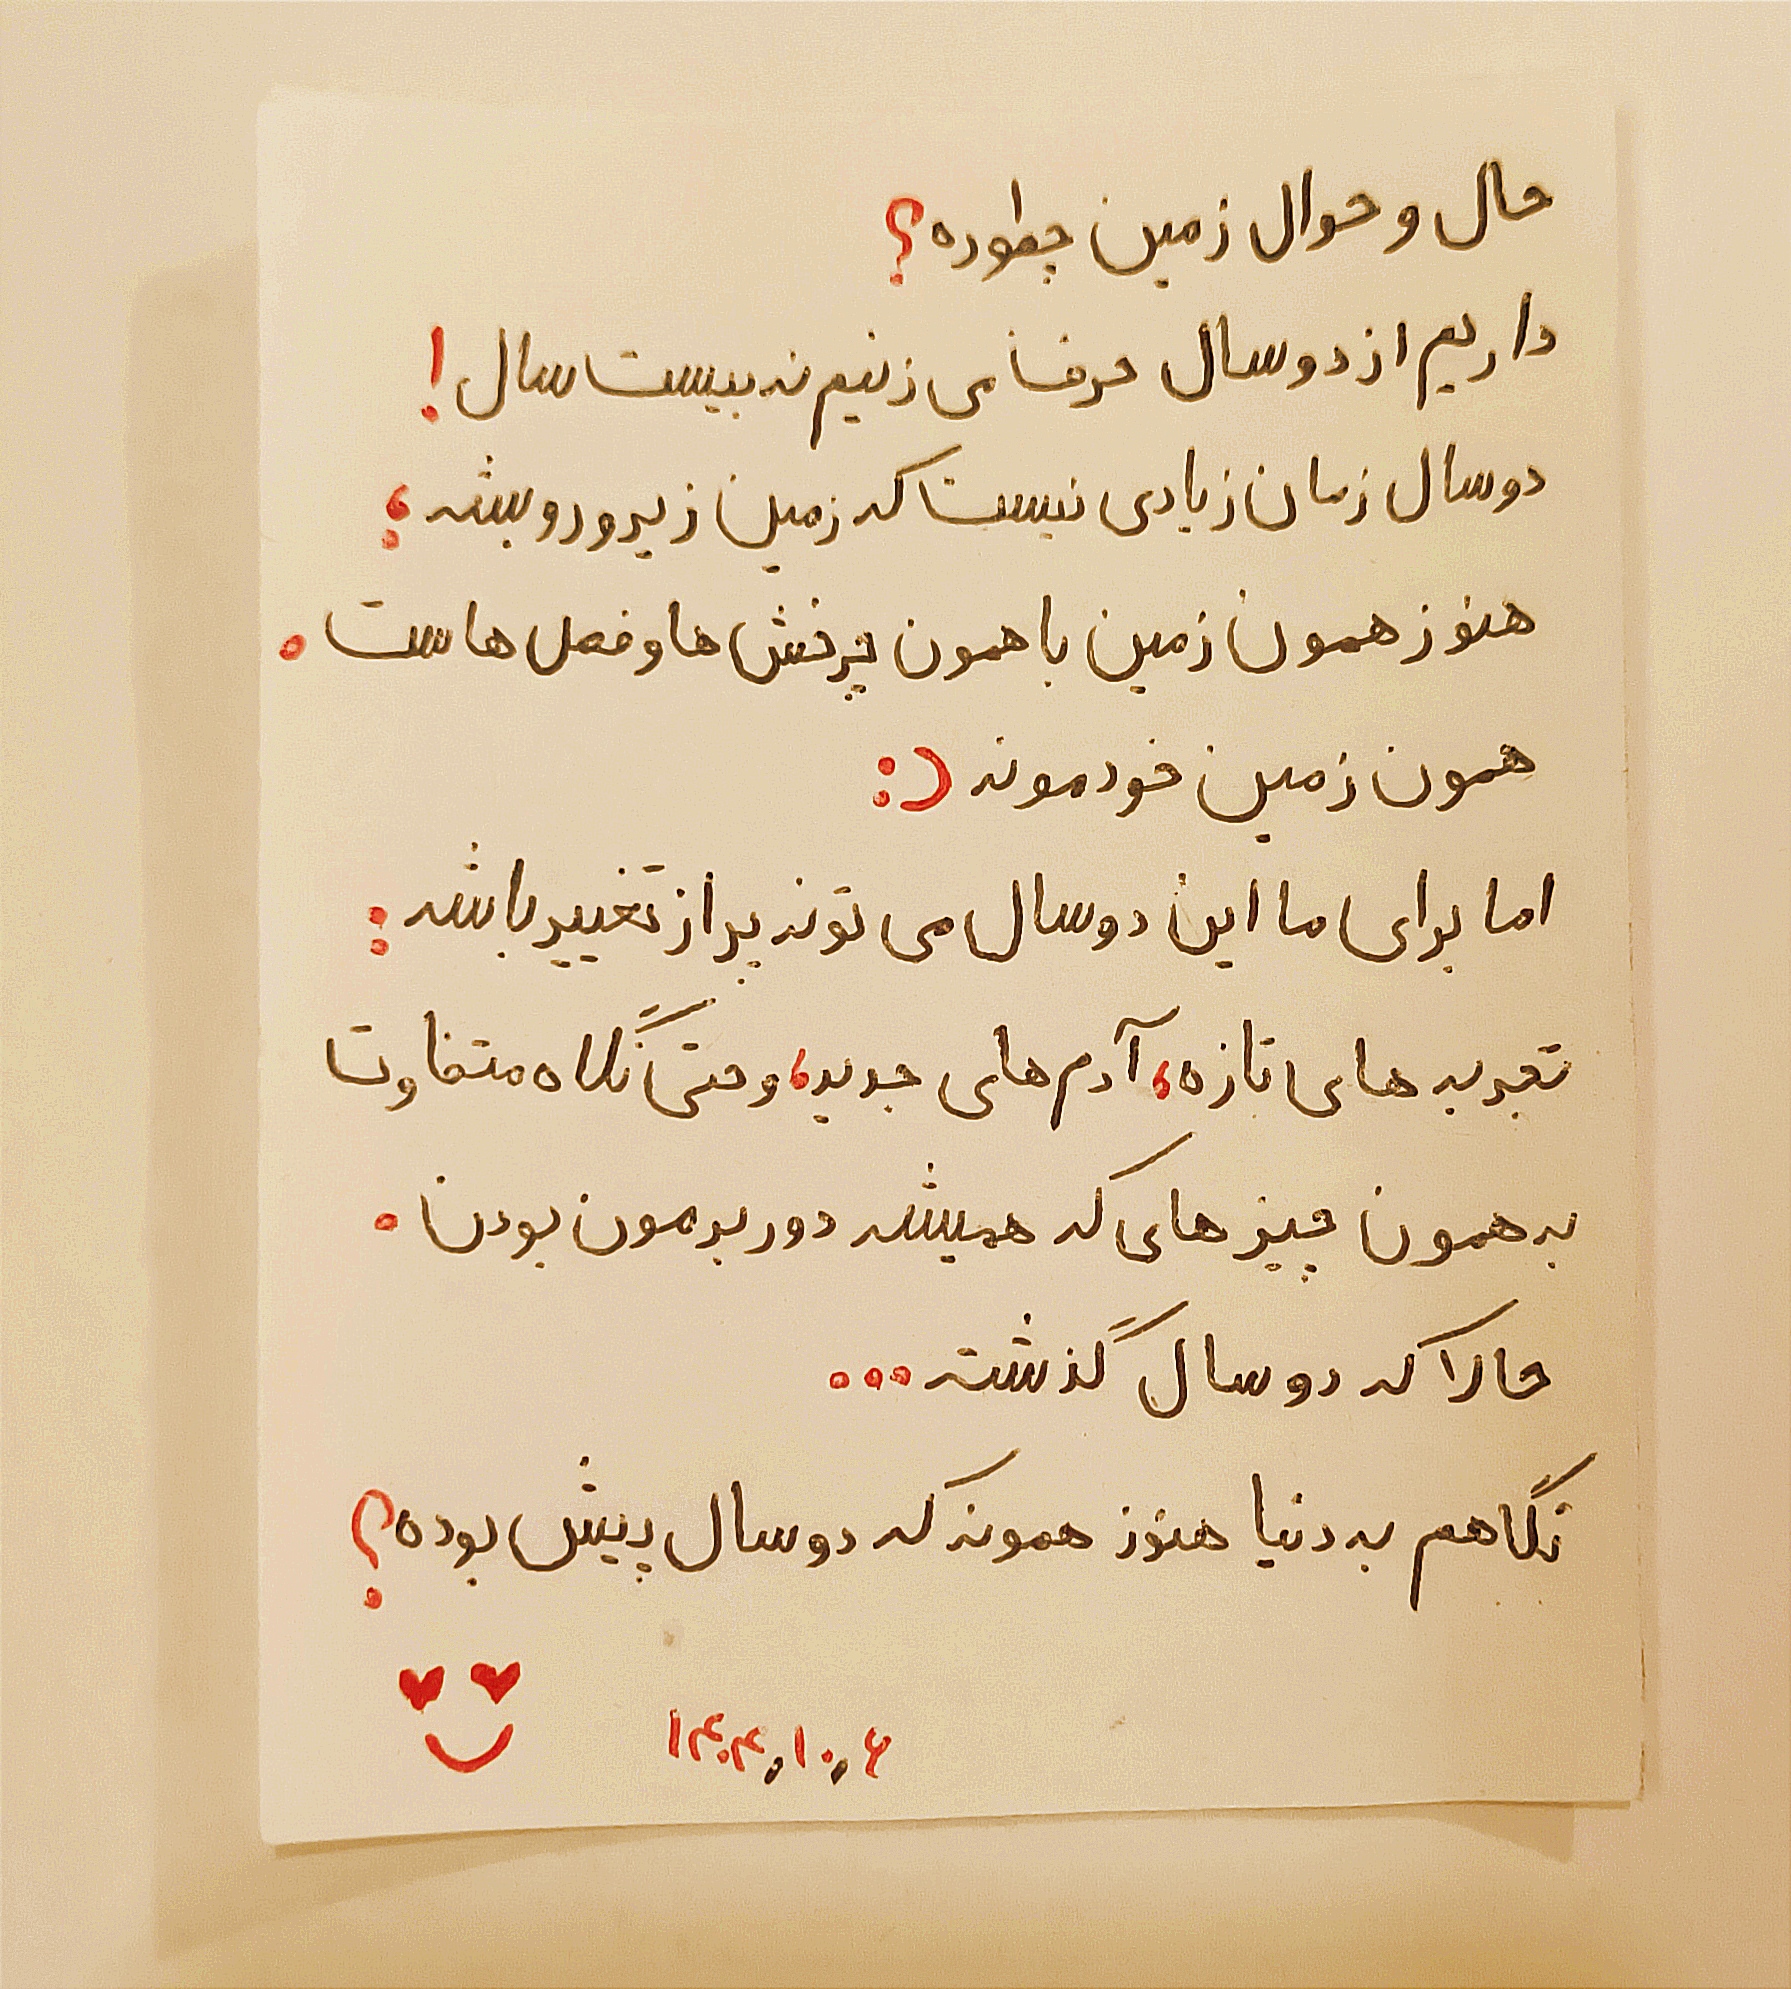 حال و حوال زمین چطوره؟
داریم از دو سال حرف می زنیم نه بیست سال!
دو سال زمان زیادی نیست که زمین زیر و رو بشه؛
هنوز همون زمین با همون چرخش ها و فصل هاست.
همون زمین خودمونه :)
اما برای ما این دو سال می تونه پر از تغییر باشه:
تجربه های تازه، آدم های جدید، و حتی نگاه متفاوت
به همون چیز های که همیشه دور برمون بودن.
حالا که دو سال گذشته...
نگاهم به دنیا هنوز همونه که دو سال پیش بوده؟
۱۴۰۴,۱۰,۶